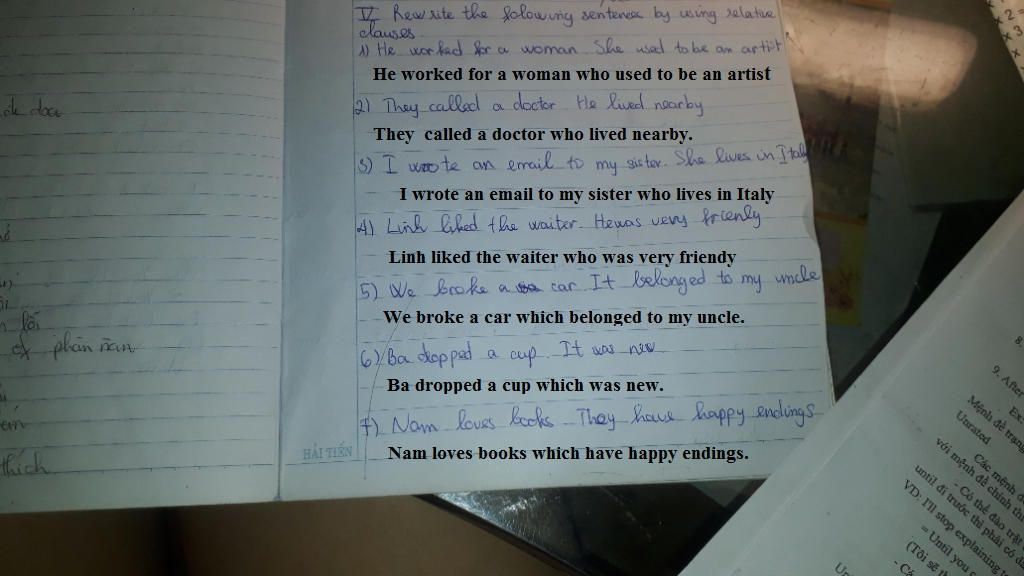 V Rewrite the folowing sentences by using relative
clauses
1) He worked for a woman She used to be an artist
He worked for a woman who used to be an artist
2) They called a doctor He lived nearby
They called a doctor who lived nearby.
3) I wrote an email to my sister. She lives in Italy
I wrote an email to my sister who lives in Italy
4) Linh liked the waiter. He was very frienly
Linh liked the waiter who was very friendy
5) We broke a car It belonged to my uncle
We broke a car which belonged to my uncle.
6) Ba dropped a cup It was new
Ba dropped a cup which was new.
7) Nam loves books They have happy endings
HẢI TIẾN
Nam loves books which have happy endings.
lỗi
phàn nàn
thích
8.
9. After
Mệnh đề trạng
Unrated
Các mệnh đ
với mệnh đề chính th
- Có thể đảo trật
until đi trước thì phải có d
VD: I'll stop explaining to
= Until you
(Tôi sẽ